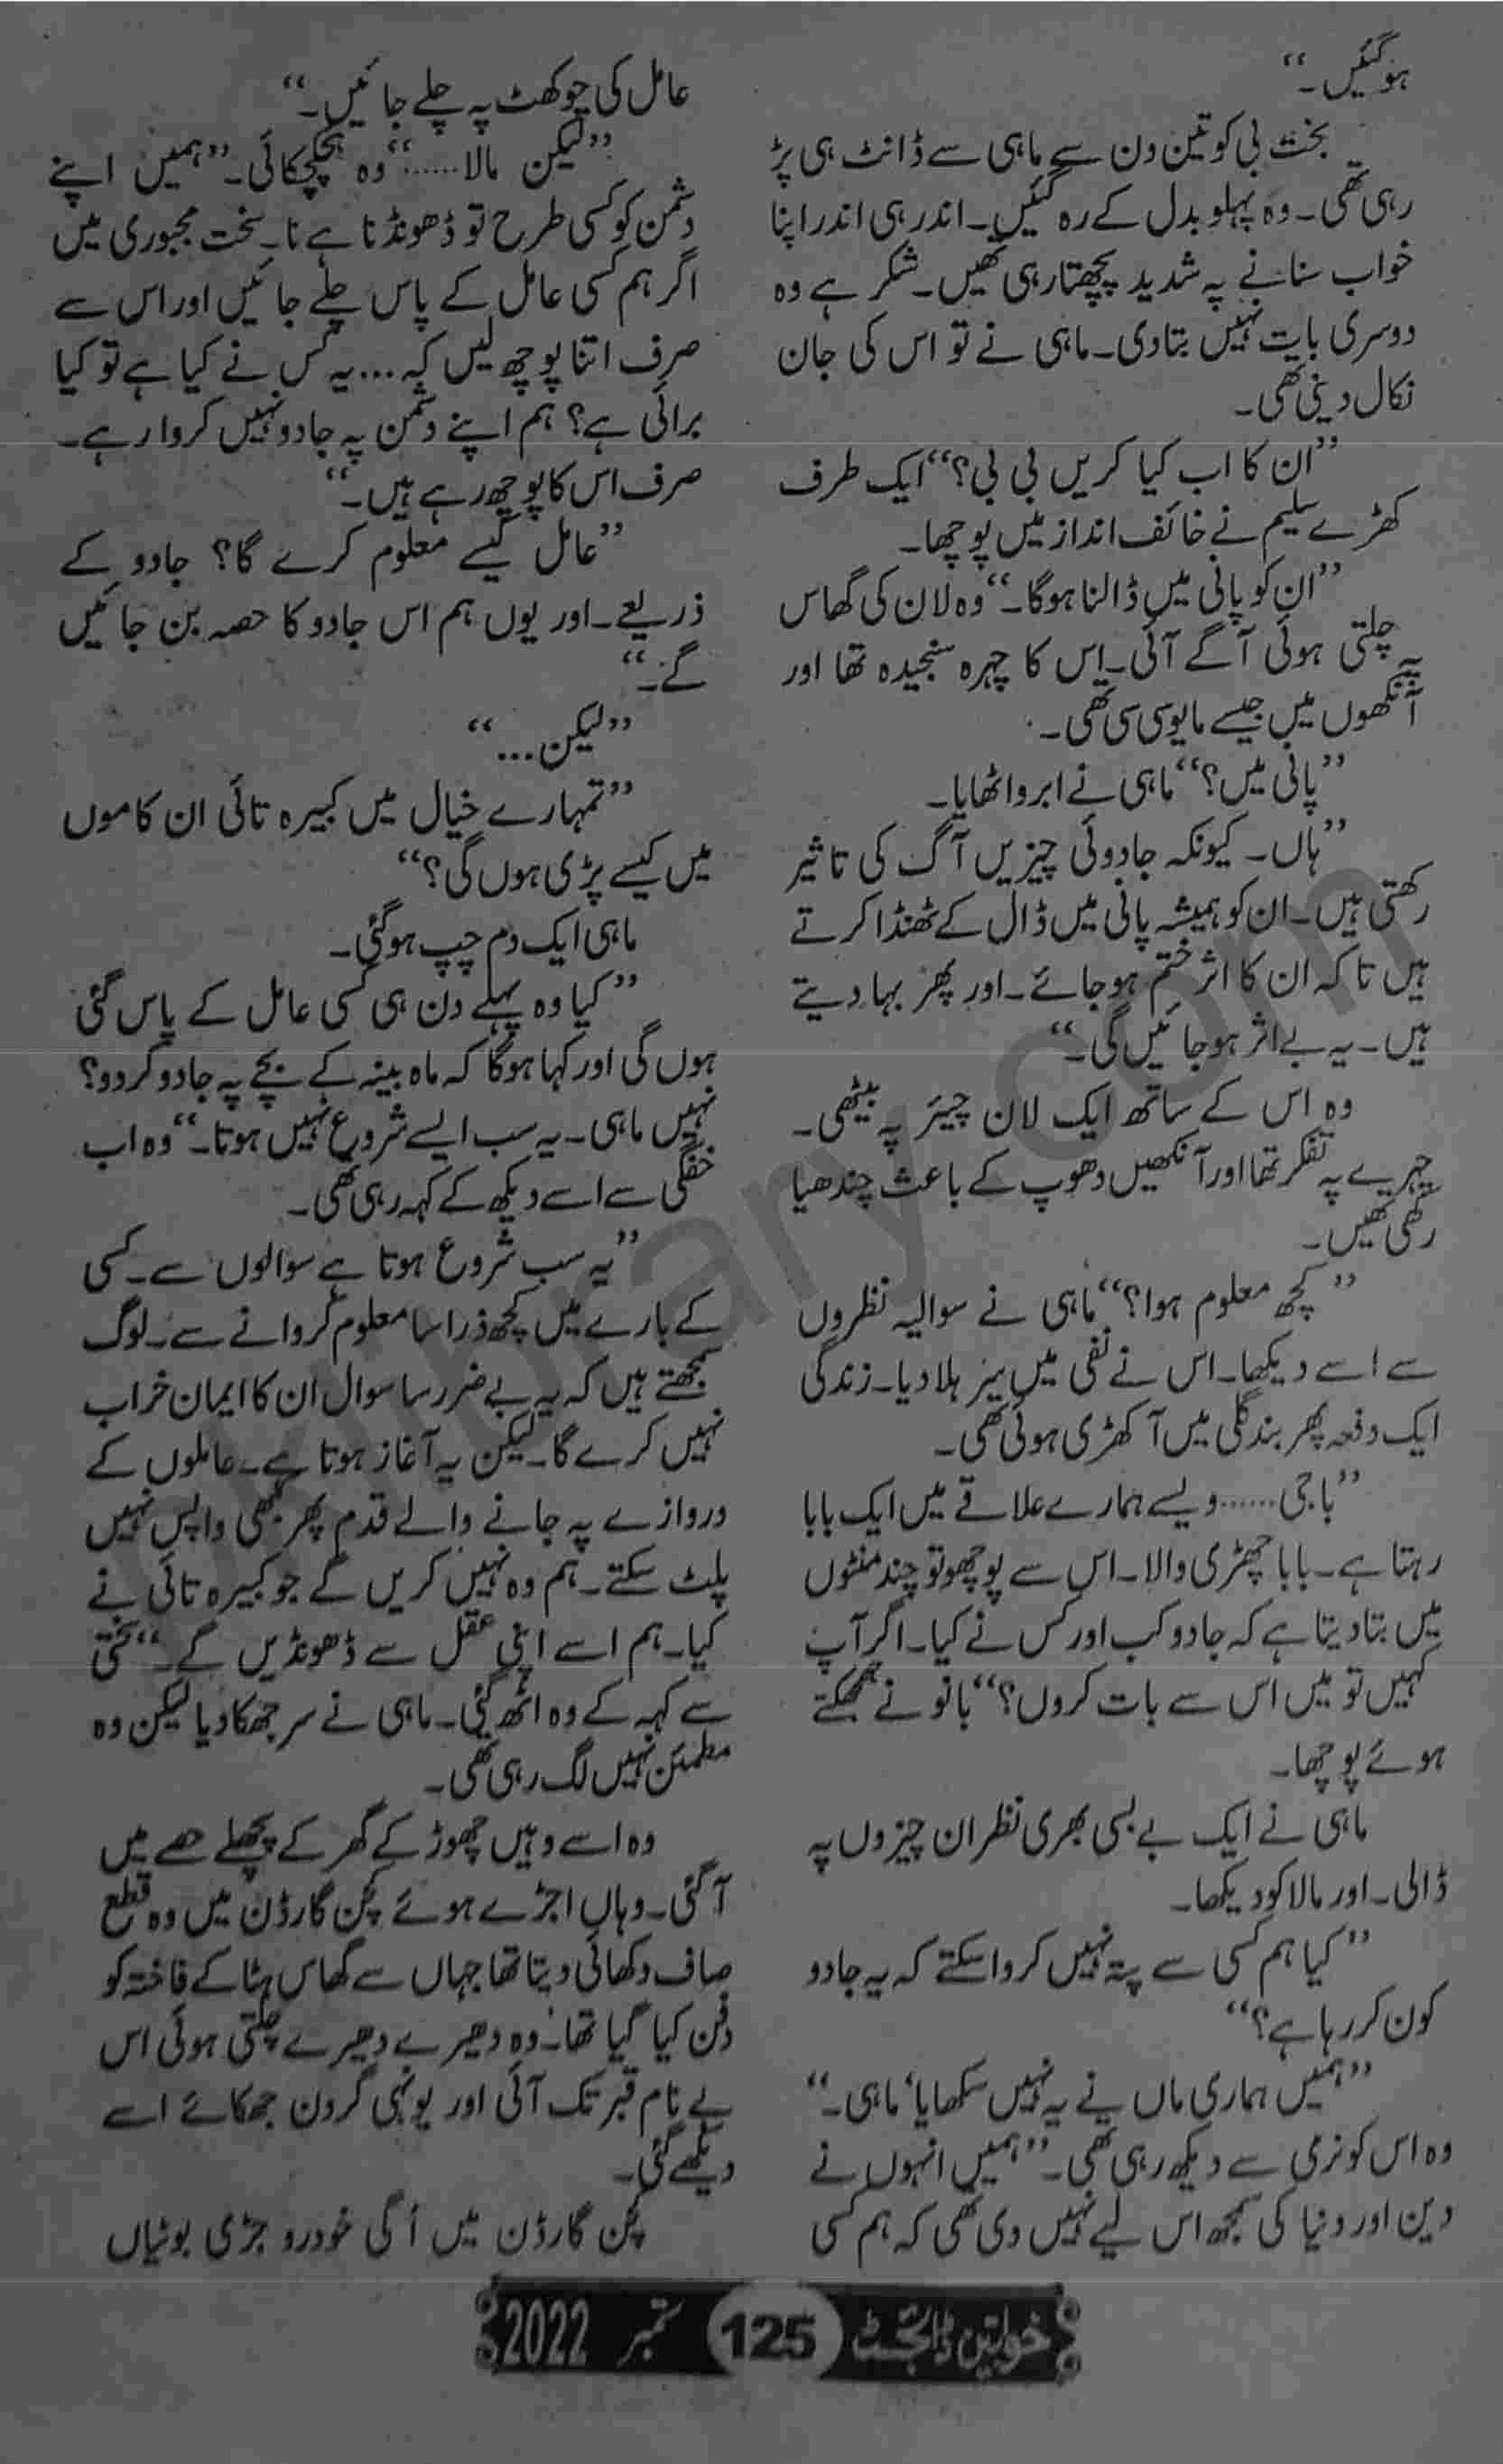 ہوگئیں۔“
بخت بی کو تین دن سے ماہی سے ڈانٹ ہی پڑ
رہی تھی۔ وہ پہلو بدل کے رہ گئیں۔ اندر ہی اندر اپنا
خواب سنانے پہ شدید پچھتا رہی تھیں۔ شکر ہے وہ
دوسری بات نہیں بتادی۔ ماہی نے تو اس کی جان
نکال دینی تھی۔
”ان کا اب کیا کریں بی بی؟“ ایک طرف
کھڑے سلیم نے خائف انداز میں پوچھا۔
”ان کو پانی میں ڈالنا ہوگا۔“ وہ لان کی گھاس
پہ چلتی ہوئی آگے آئی۔ اس کا چہرہ سنجیدہ تھا اور
آنکھوں میں جیسے مایوسی سی تھی۔
”پانی میں؟“ ماہی نے ابرو اٹھایا۔
”ہاں۔ کیونکہ جادوئی چیزیں آگ کی تاثیر
رکھتی ہیں۔ ان کو ہمیشہ پانی میں ڈال کے ٹھنڈا کرتے
ہیں تاکہ ان کا اثر ختم ہوجائے۔ اور پھر بہا دیتے
ہیں۔ یہ بے اثر ہوجائیں گی۔“
وہ اس کے ساتھ ایک لان چیئر پہ بیٹھی۔
چہرے پہ تفکر تھا اور آنکھیں دھوپ کے باعث چندھیا
رکھی تھیں۔
”کچھ معلوم ہوا؟“ ماہی نے سوالیہ نظروں
سے اسے دیکھا۔ اس نے نفی میں سر ہلا دیا۔ زندگی
ایک دفعہ پھر بند گلی میں آ کھڑی ہوئی تھی۔
”باجی...... ویسے ہمارے علاقے میں ایک بابا
رہتا ہے۔ بابا چھڑی والا۔ اس سے پوچھو تو چند منٹوں
میں بتا دیتا ہے کہ جادو کب اور کس نے کیا۔ اگر آپ
کہیں تو میں اس سے بات کروں؟“ بانو نے جھجکتے
ہوئے پوچھا۔
ماہی نے ایک بے بسی بھری نظر ان چیزوں پہ
ڈالی۔ اور مالا کو دیکھا۔
”کیا ہم کسی سے پتہ نہیں کروا سکتے کہ یہ جادو
کون کر رہا ہے؟“
”ہمیں ہماری ماں نے یہ نہیں سکھایا‘ ماہی۔“
وہ اس کو نرمی سے دیکھ رہی تھی۔ ”ہمیں انہوں نے
دین اور دنیا کی سمجھ اس لیے نہیں دی تھی کہ ہم کسی
عامل کی چوکھٹ پہ چلے جائیں۔“
”لیکن مالا......“ وہ ہچکچائی۔ ”ہمیں اپنے
دشمن کو کسی طرح تو ڈھونڈنا ہے نا۔ سخت مجبوری میں
اگر ہم کسی عامل کے پاس چلے جائیں اور اس سے
صرف اتنا پوچھ لیں کہ... یہ کس نے کیا ہے تو کیا
برائی ہے؟ ہم اپنے دشمن پہ جادو نہیں کروا رہے۔
صرف اس کا پوچھ رہے ہیں۔“
”عامل کیسے معلوم کرے گا؟ جادو کے
ذریعے۔ اور یوں ہم اس جادو کا حصہ بن جائیں
گے۔“
”لیکن...“
”تمہارے خیال میں کبیرہ تائی ان کاموں
میں کیسے پڑی ہوں گی؟“
ماہی ایک دم چپ ہوگئی۔
”کیا وہ پہلے دن ہی کسی عامل کے پاس گئی
ہوں گی اور کہا ہوگا کہ ماہ بینہ کے بچے پہ جادو کردو؟
نہیں ماہی۔ یہ سب ایسے شروع نہیں ہوتا۔“ وہ اب
خفگی سے اسے دیکھ کے کہہ رہی تھی۔
”یہ سب شروع ہوتا ہے سوالوں سے۔ کسی
کے بارے میں کچھ ذرا سا معلوم کروانے سے۔ لوگ
سمجھتے ہیں کہ یہ بے ضرر سا سوال ان کا ایمان خراب
نہیں کرے گا۔ لیکن یہ آغاز ہوتا ہے۔ عاملوں کے
دروازے پہ جانے والے قدم پھر کبھی واپس نہیں
پلٹ سکتے۔ ہم وہ نہیں کریں گے جو کبیرہ تائی نے
کیا۔ ہم اسے اپنی عقل سے ڈھونڈیں گے۔“ سختی
سے کہہ کے وہ اٹھ گئی۔ ماہی نے سر جھکا دیا لیکن وہ
مطمئن نہیں لگ رہی تھی۔
وہ اسے وہیں چھوڑ کے گھر کے پچھلے حصے میں
آگئی۔ وہاں اجڑے ہوئے کچن گارڈن میں وہ قطع
صاف دکھائی دیتا تھا جہاں سے گھاس ہٹا کے فاختہ کو
دفن کیا گیا تھا۔ وہ دھیرے دھیرے چلتی ہوئی اس
بے نام قبر تک آئی اور یونہی گردن جھکائے اسے
دیکھے گئی۔
کچن گارڈن میں اُگی خودرو جڑی بوٹیاں
خواتین ڈائجسٹ 125 ستمبر 2022